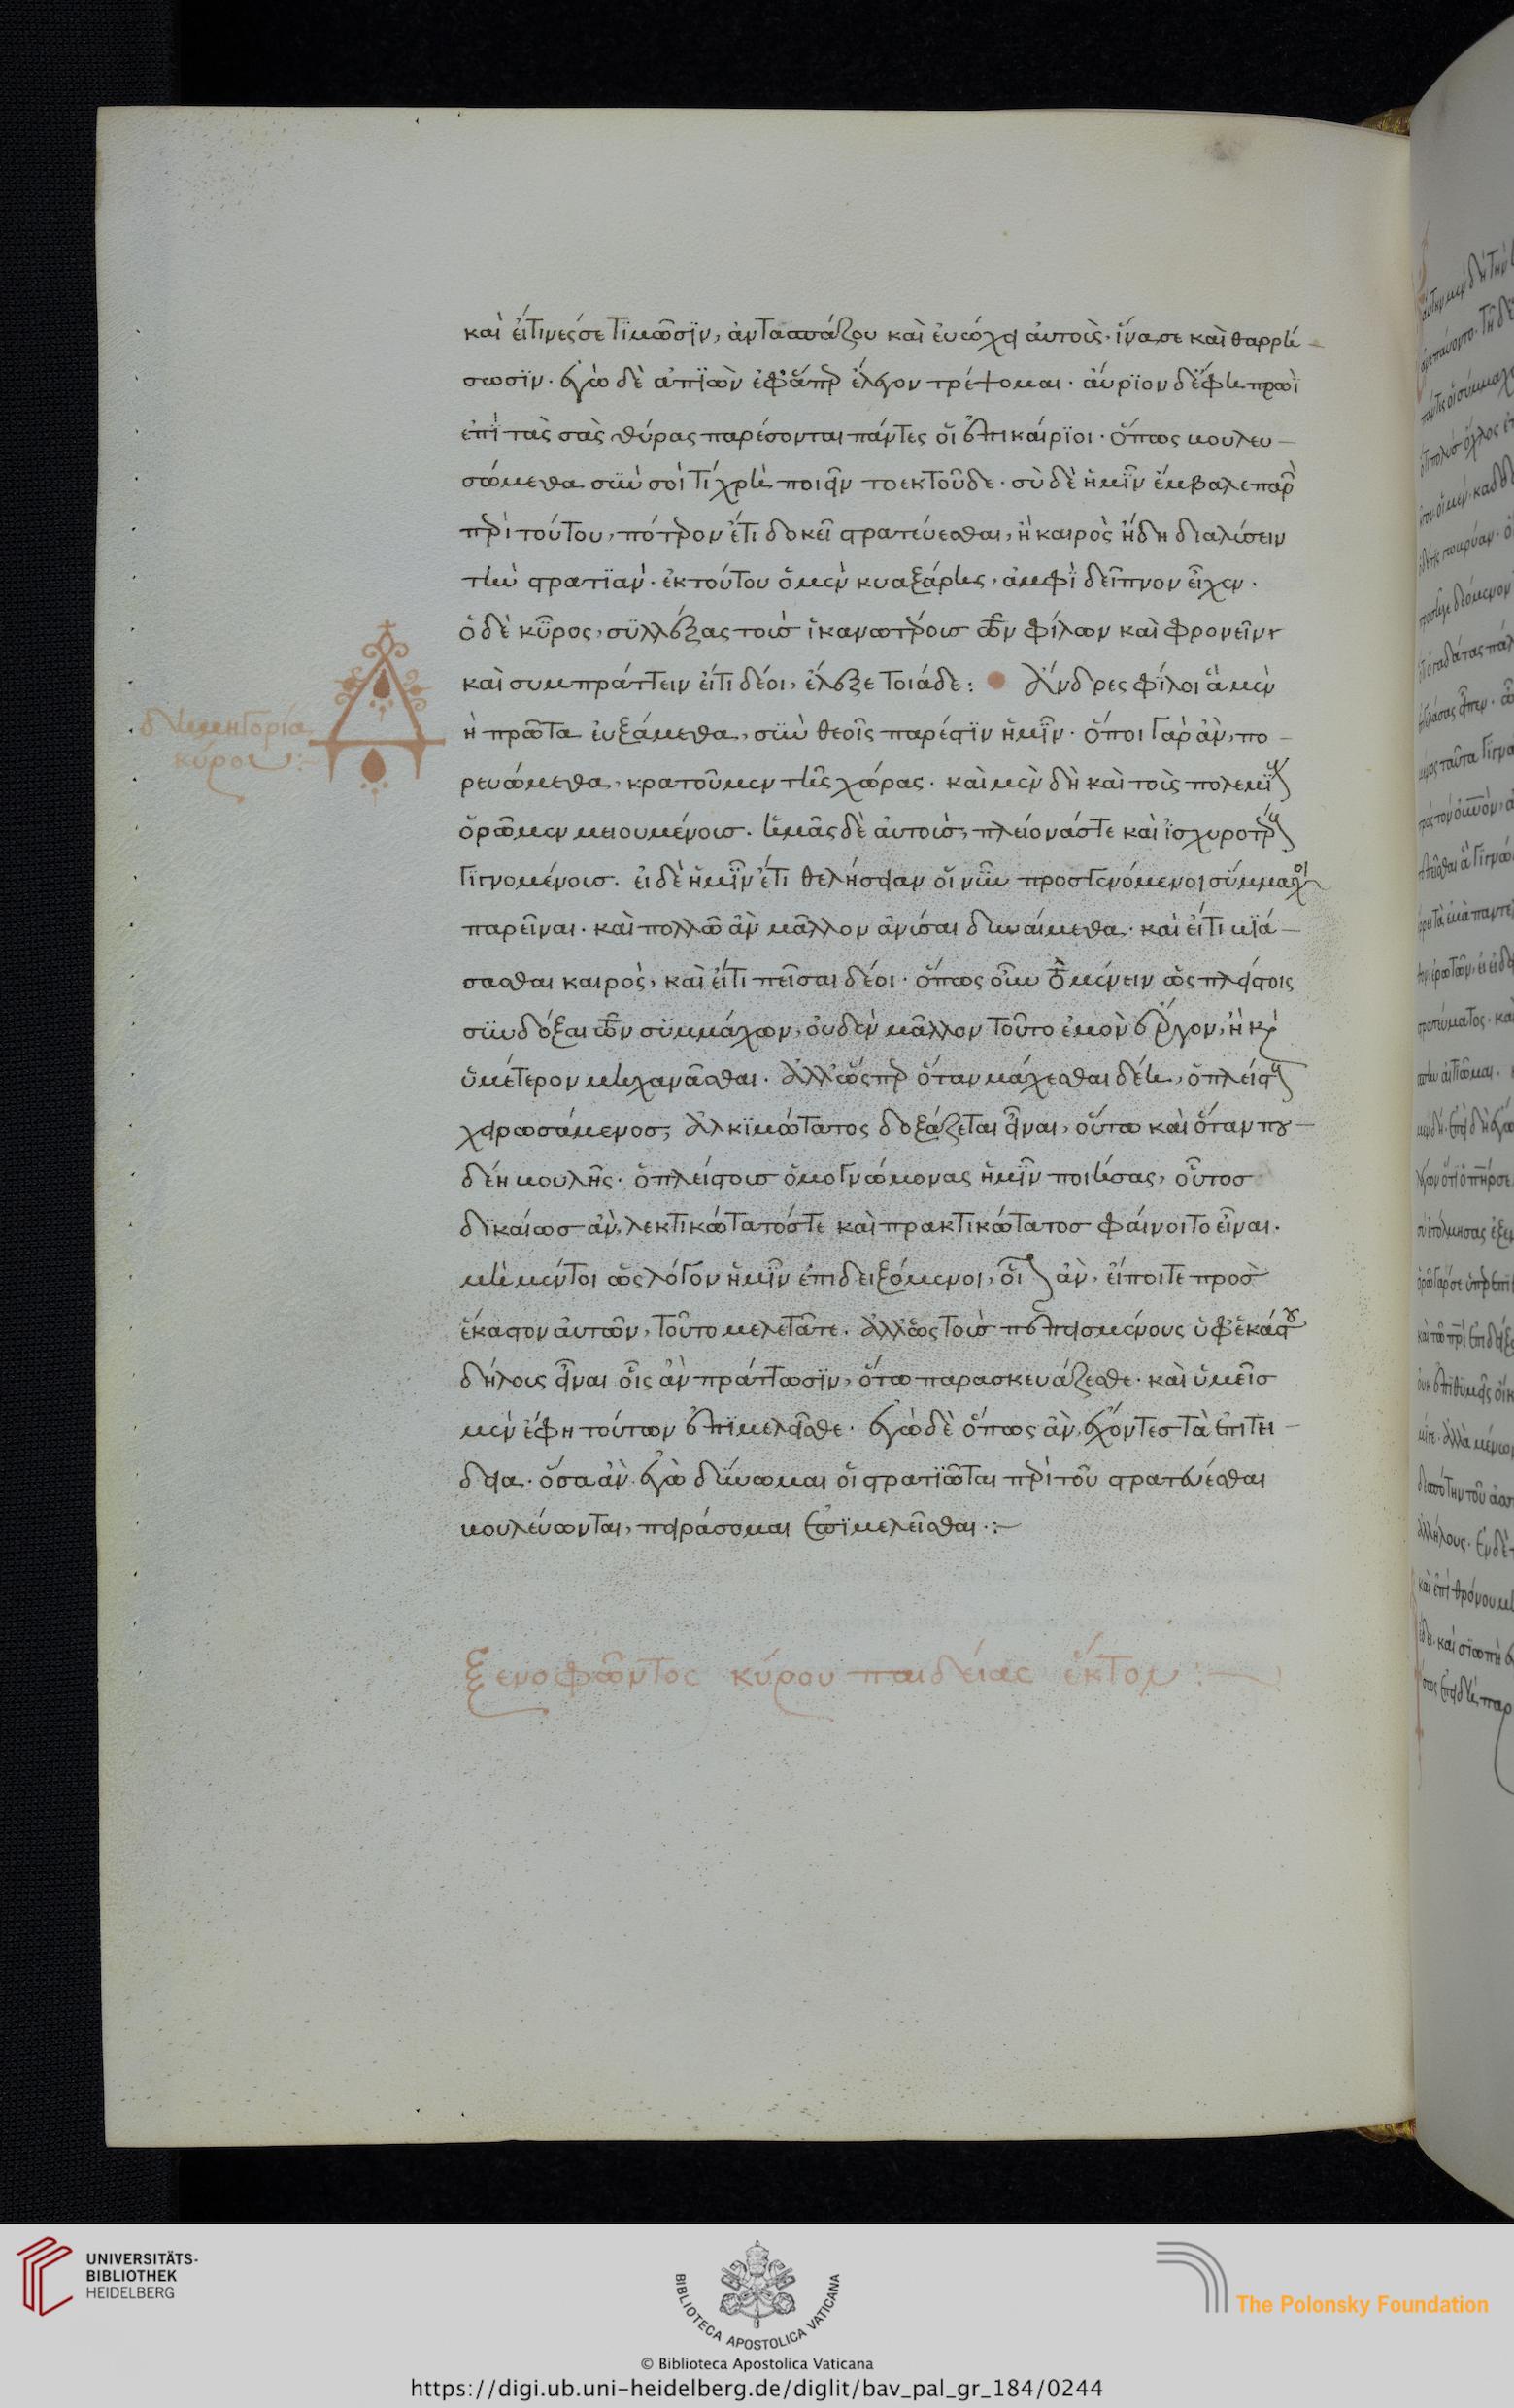 καὶ εἴτινές σε τιμῶσϊν, ἀντασπάζου καὶ ἐυώχει ἀυτοὺς· ἵνα σε καὶ θαρρή-
σωσϊν· ἐγὼ δὲ ἀπϊὼν ἐφ' ἅπερ ἔλεγον τρέψομαι· ἀύρϊον δ' ἔφη πρωῒ
ἐπὶ τὰς σὰς θύρας παρέσονται πάντες οἱ ἐπικαίρϊοι· ὅπως βουλευ-
σώμεθα σὺν σοὶ τί χρὴ ποιεῖν τὸ ἐκ τοῦδε· σὺ δὲ ἡμῖν ἔμβαλε παρὼν
περὶ τούτου, πότερον ἔτι δοκεῖ στρατεύεσθαι, ἢ καιρὸς ἤδη διαλύσειν
τὴν στρατϊάν· ἐκ τούτου ὁ μὲν κυαξάρης, ἀμφὶ δεῖπνον εἶχεν·
ὁ δὲ κῦρος, συλλέξας τοὺς ἱκανωτέρους τῶν φίλων καὶ φρονεῖν
καὶ συμπράττειν εἴ τι δέοι, ἔλεξε τοιάδε: Ἄνδρες φίλοι ἃ μὲν
δημηγορία
κύρου :-
δὴ πρῶτα ἐυξάμεθα, σὺν θεοῖς πάρεστϊν ἡμῖν· ὅποι γὰρ ἂν, πο-
ρευώμεθα, κρατοῦμεν τῆς χώρας· καὶ μὲν δὴ καὶ τοὺς πολεμίους
ὁρῶμεν μειουμένους· ἡμᾶς δὲ ἀυτοὺς, πλείονάς τε καὶ ἰσχυροτέρους
γιγνομένους· εἰ δὲ ἡμῖν ἔτι θελήσειαν οἱ νῦν προσγενόμενοι σύμμαχοι
παρεῖναι· καὶ πολλῶ ἂν μᾶλλον ἀνύσαι δυναίμεθα· καὶ εἴ τι βιά-
σασθαι καιρὸς, καὶ εἴ τι πεῖσαι δέοι· ὅπως οὖν τὸ μένειν ὡς πλείστοις
συνδόξαι τῶν συμμάχων, ὀυδὲν μᾶλλον τοῦτο ἐμὸν ἔργον, ἢ καὶ
ὑμέτερον μηχανᾶσθαι· Ἀλλ' ὥσπερ ὅταν μάχεσθαι δέη, ὁ πλείστους
χειρωσάμενος, Ἀλκϊμώτατος δοξάζεται εἶναι, οὕτω καὶ ὅταν που
δέη βουλῆς· ὁ πλείστους ὁμογνώμονας ἡμῖν ποιήσας, οὗτος
δϊκαίως ἂν, λεκτικώτατός τε καὶ πρακτικώτατος φαίνοιτο εἶναι·
μὴ μέντοι ὡς λόγον ἡμῖν ἐπιδειξόμενοι, οἷον ἂν, εἴποιτε πρὸς
ἕκαστον ἀυτῶν, τοῦτο μελετᾶτε· Ἀλλ' ὡς τοὺς πεπεισμένους ὑφ' ἑκάστου
δήλους εἶναι οἷς ἂν πράττωσϊν, οὕτω παρασκευάζεσθε· καὶ ὑμεῖς
μὲν ἔφη τούτων ἐπϊμελεῖσθε· ἐγὼ δὲ ὅπως ἂν, ἔχοντες τὰ ἐπιτή-
δεια· ὅσα ἂν ἐγὼ δύνωμαι οἱ στρατϊῶται περὶ τοῦ στρατεύεσθαι
βουλεύωνται, πειράσομαι ἐπϊμελεῖσθαι·:-
ξενοφῶντος κύρου παιδείας ἕκτον :-
UNIVERSITÄTS-
BIBLIOTHEK
HEIDELBERG
BIBLIOTECA APOSTOLICA VATICANA
© Biblioteca Apostolica Vaticana
The Polonsky Foundation
https://digi.ub.uni-heidelberg.de/diglit/bav_pal_gr_184/0244